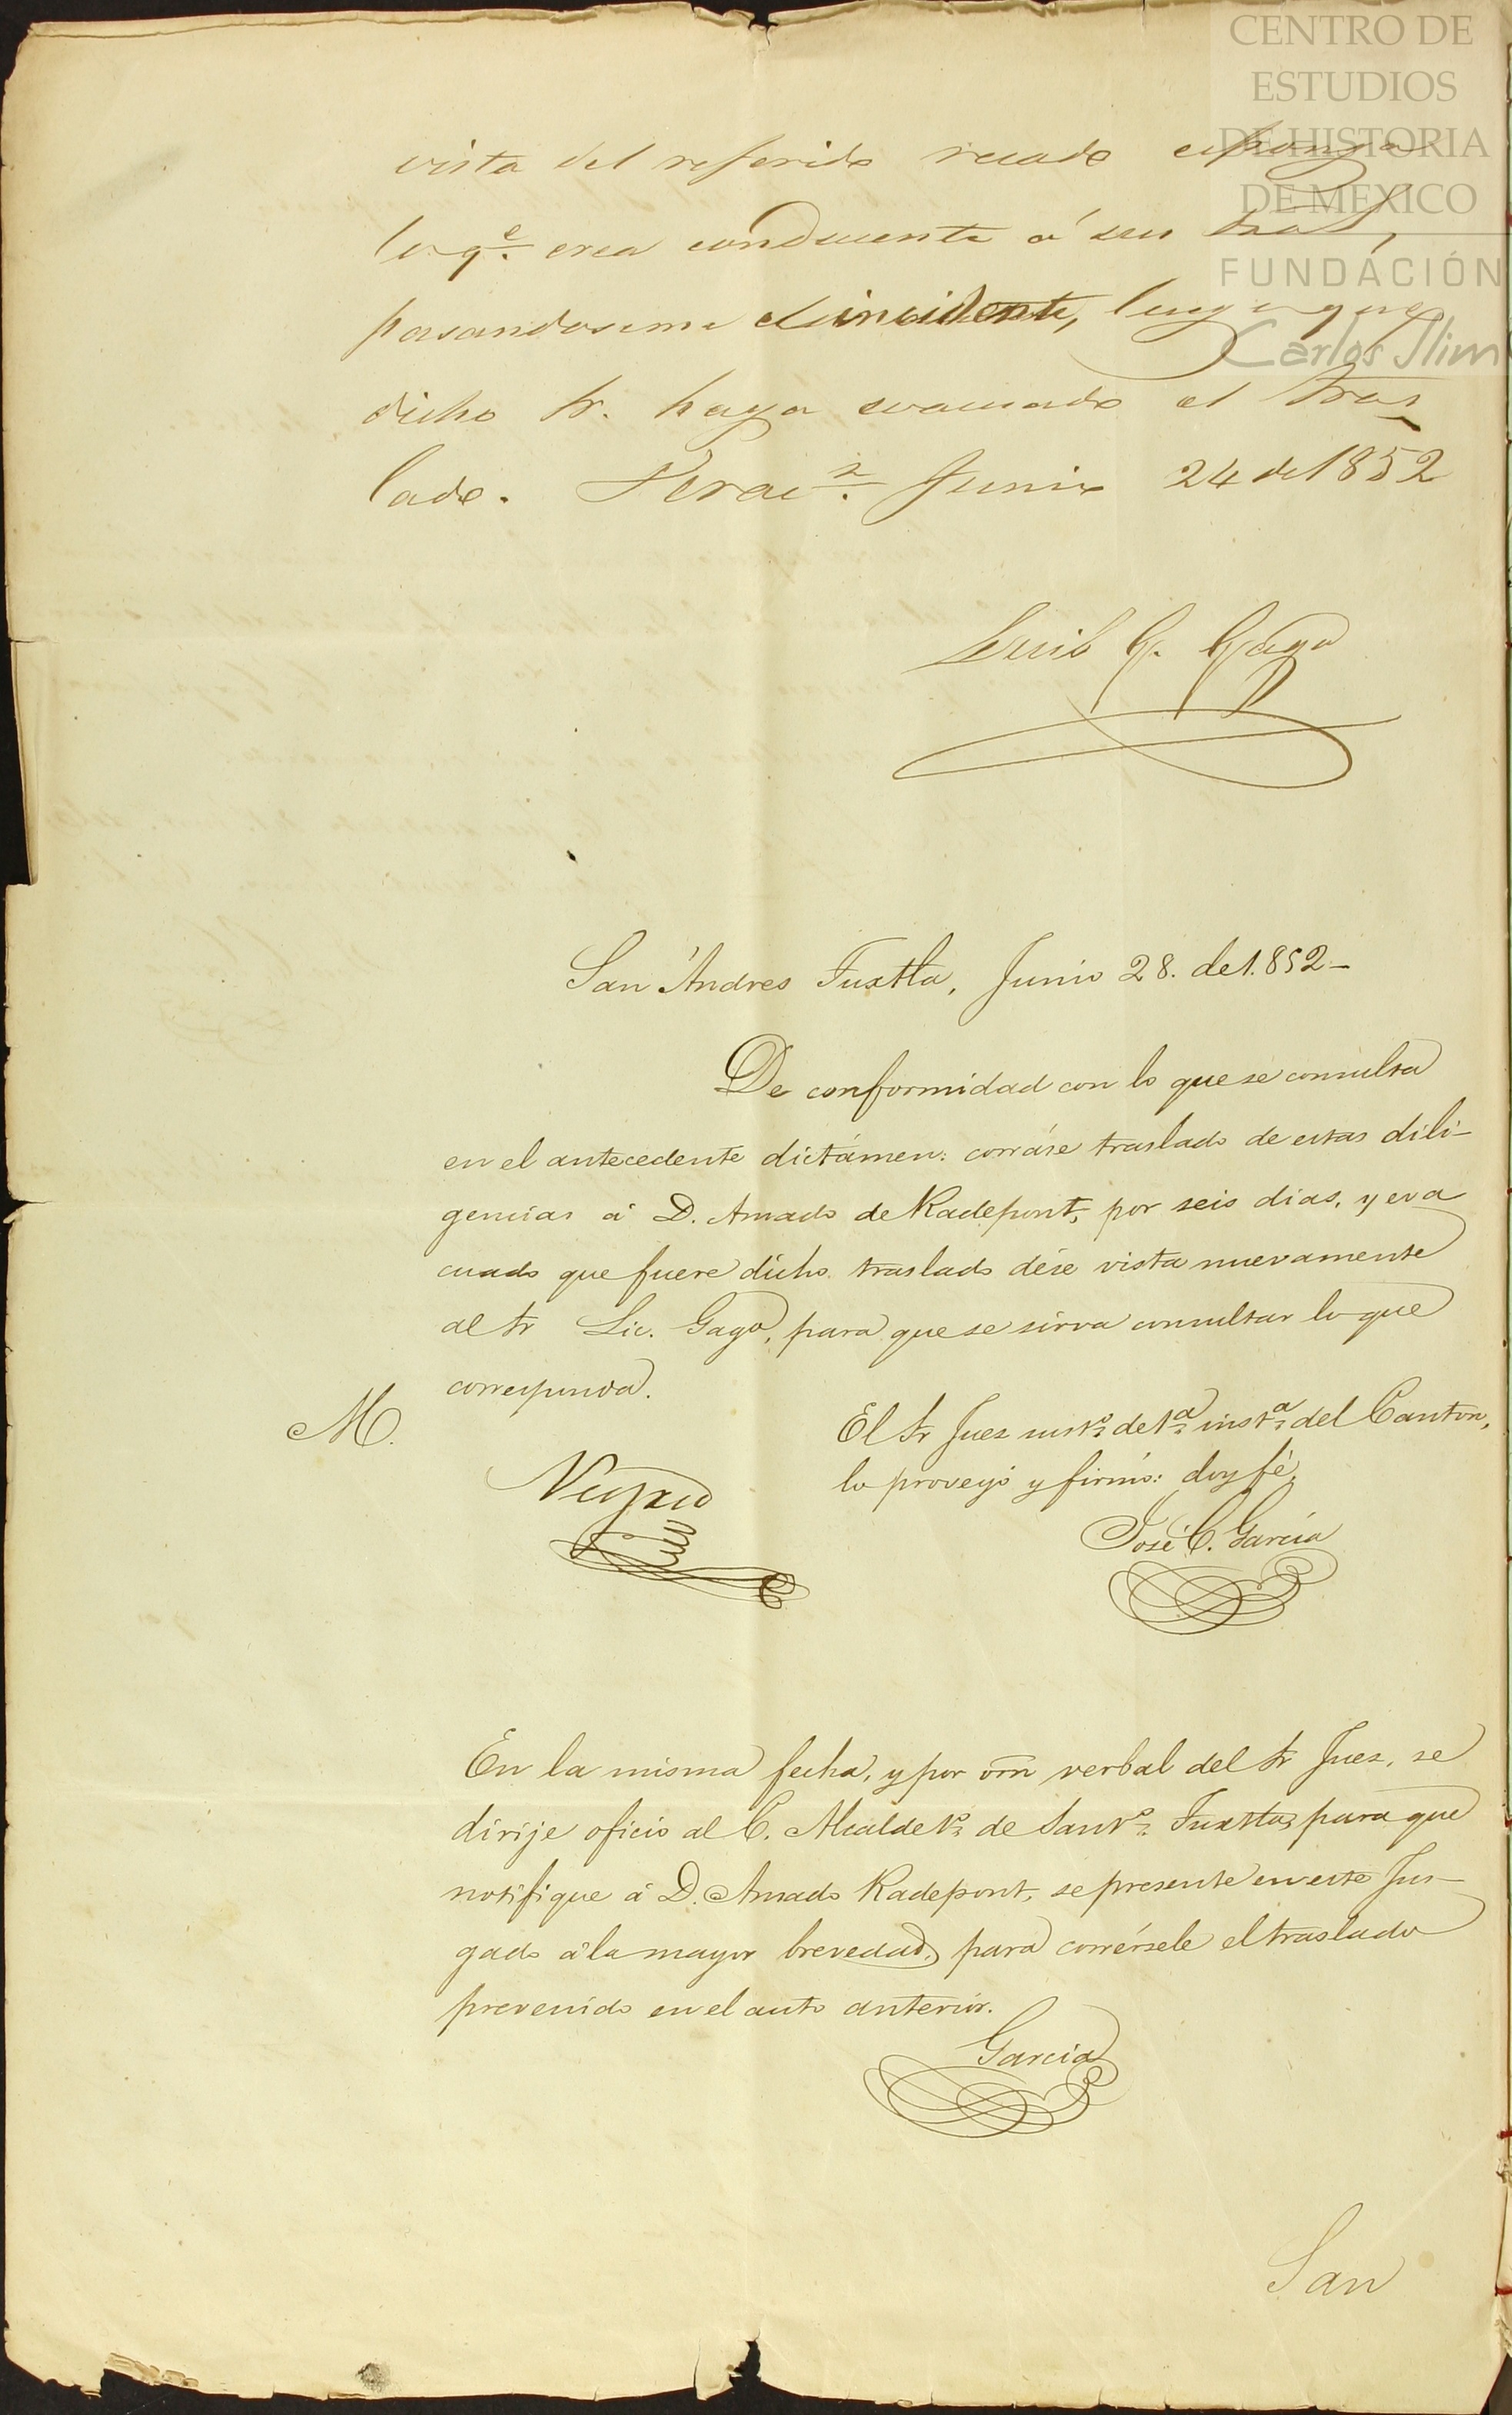 CENTRO DE
ESTUDIOS
DE HISTORIA
DE MEXICO
FUNDACIÓN
Carlos Slim
vista del referido recado esponga
lo q.e crea conducente á sus
pasandoseme el incidente, luego que
dicho Sr. haya evacuado el tras
lado. Verac.z Junio 24 de 1852
Luis G. Gago
San Andres Tuxtla, Junio 28. de 1.852-
De conformidad con lo que se consulta
en el antecedente dictámen: corráse traslado de estas dili-
gencias á D. Amado de Radepont, por seis dias, y eva
cuado que fuere dicho traslado dése vista nuevamente
al Sr Lic. Gago, para que se sirva consultar lo que
corresponda.
M.
El Sr Juez de 1a insta del Canton,
lo proveyó y firmó: doy fé,
José C. García
En la misma fecha, y por orn verbal del Sr Juez, se
dirije oficio al C. Alcalde 1o de Santo Tuxtla, para que
notifique á D. Amado Radepont, se presente en este Jus-
gado á la mayor brevedad, para corrérsele el traslado
prevenido en el auto anterior.
García
San